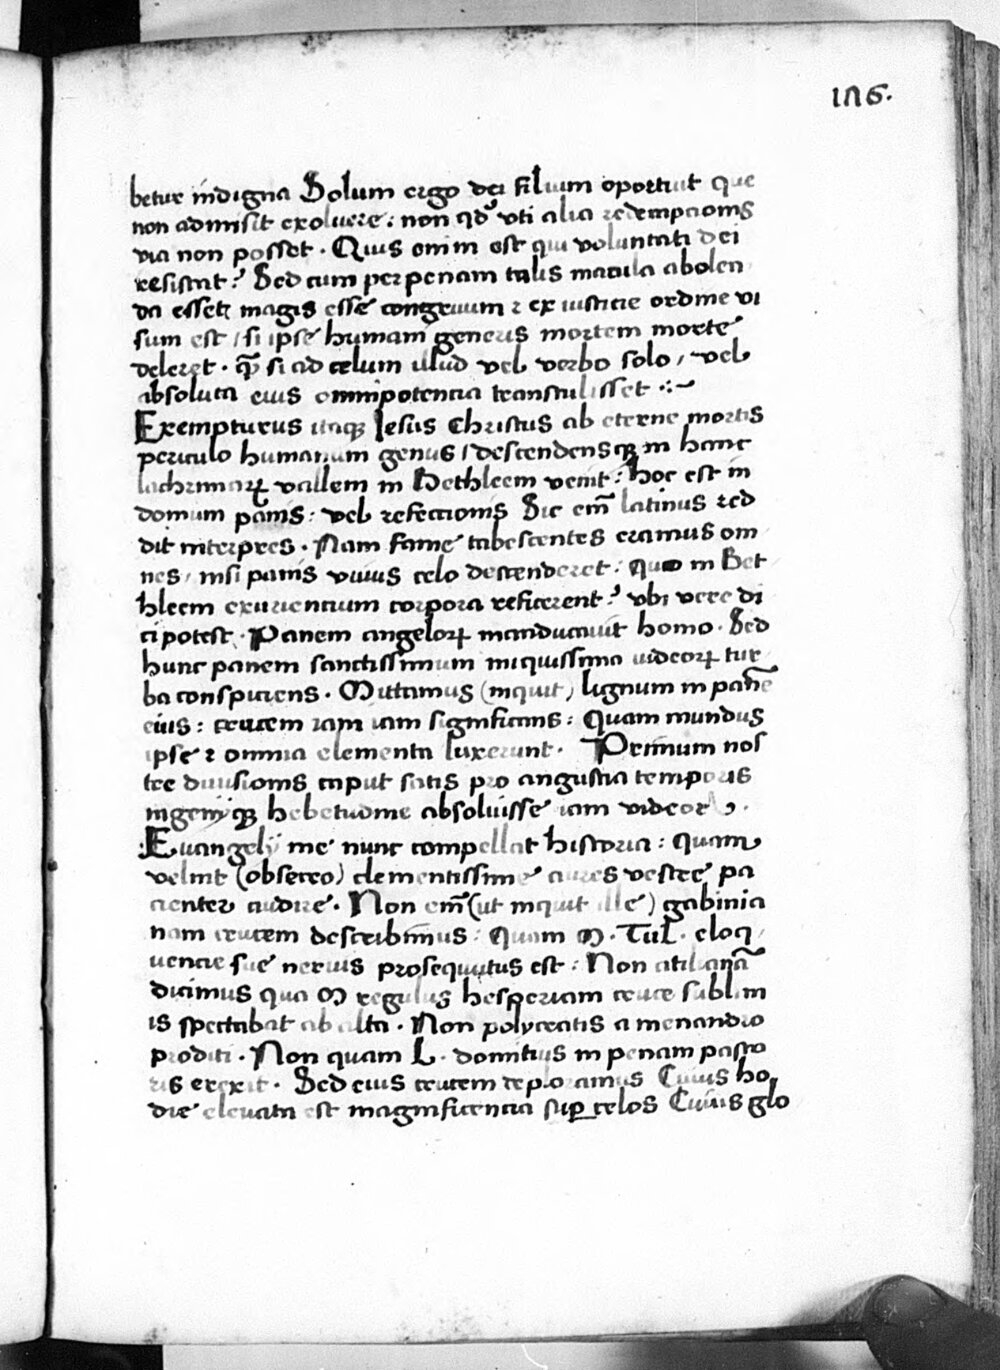 186.
betur indigna Solum ergo dei filium oportuit que
non admisit exoluere: non qd' vti alia redempcionis
via non posset. Quis enim est qui voluntati dei
resistat? Sed cum per penam talis macula abolen
da esset magis esse congruum ⁊ ex iusticie ordine vi
sum est / si ipse humani generis mortem morte
deleret. qȝ si ad celum illud vel verbo solo / vel
absoluta eius omnipotencia transtulisset .:~
Exempturus itaqȝ Jesus Christus ab eterne mortis
periculo humanum genus / descendensqȝ in hanc
lachrimarꝝ vallem in Bethleem venit: hoc est in
domum panis: vel refeccionis Sic em̄ latinus red
dit interpres. Nam fame tabescentes eramus om
nes / nisi panis viuus celo descenderet: quo in Bet
hleem exurientium corpora reficerent? vbi vere di
ci potest. Panem angelorꝝ manducauit homo. Sed
hunc panem sanctissimum iniquissima iudeorꝝ tur
ba conspiciens. Mittamus (inquit) lignum in pane
eius: crucem iam iam significans: Quam mundus
ipse ⁊ omnia elementa luxerunt. Primum nos
tre diuisionis caput satis pro angustia temporis
ingenijqȝ hebetudine absoluisse iam videor.
Euangelij me nunc compellat historia: quam
velint (obsecro) clementissime aures vestre pa
cienter audire. Non em̄ (ut inquit ille) gabinia
nam crucem describimus: Quam M. Tul. eloq
uencie sue neruis prosequutus est: Non atilianā
dicimus qua M regulus hesperiam cruce sublim
is spectabat ab alta. Non polycratis a menandro
proditi. Non quam L. domitius in penam pasto
ris erexit. Sed eius crucem deploramus Cuius ho
die eleuata est magnificencia suꝑ celos Cuius glo